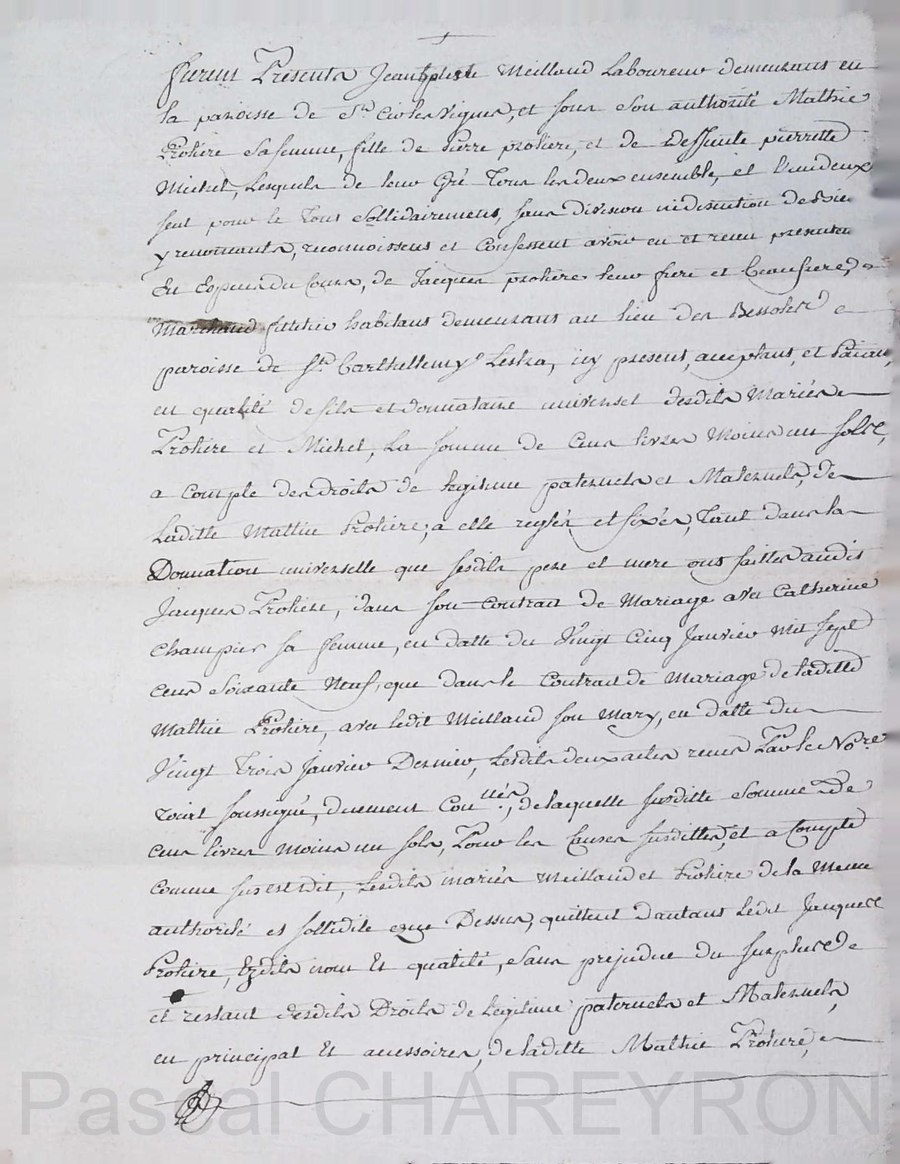 furent Presents Jeanbptiste Meilland Laboureur demeurant en
la paroisse de St Cir les Vignes, et sous son authorité Mathie
Protiere sa femme, fille de Pierre protiere, et de deffunte pierrette
Michel, Lesquels de leur Gré Tous les deux ensemble, et l'un deux
seul pour le Tout Sollidairement, sans division ni discution de
y renonnants, reconnoissent et Confessent avoir eu et receu presentemt
En Especes du Cours, de Jacques protiere leur frere et Beaufrere,
Marchand habitant demeurant au lieu des
paroisse de St Barthellemy Lestra, icy present, acceptant, et Paiant
en qualité de fils et donnataire universel desdits Mariés
Protiere et Michel, La somme de Cent livres Moins un solz,
a compte des droits de legitime paternels et Maternels, de
Laditte Mathie Protiere, a elle reglés et fixés, Tant dans la
Donnation universelle que sesdits pere et mere ont faitte audit
Jacques Protiere, dans son contrat de Mariage avec Catherine
Champier sa femme, en datte du Vingt Cinq Janvier Mil sept
cent Soixante Neuf, que dans le Contrat de Mariage de laditte
Mathie Protiere, avec ledit Meilland son Mary, en datte du
Vingt Trois Janvier Dernier, Lesdits deux actes receus Par le Nore
Roial soussigné, duement Conllés, de laquelle susditte Somme De
Cent livres Moins un sols, Pour les Causes susdittes, et a Compte
comme sus est dit, Lesdits mariés Meilland et Protiere de la Meme
authorité et sollidité que Dessus, quittent d'autant Ledit Jacques
Protiere, Ezdits nom Et qualité, Sans prejudice du surplus de
et restant desdits Droits de Legitime paternels et Maternels,
en principal Et accessoires, de laditte Mathie Protiere,
Pascal CHAREYRON